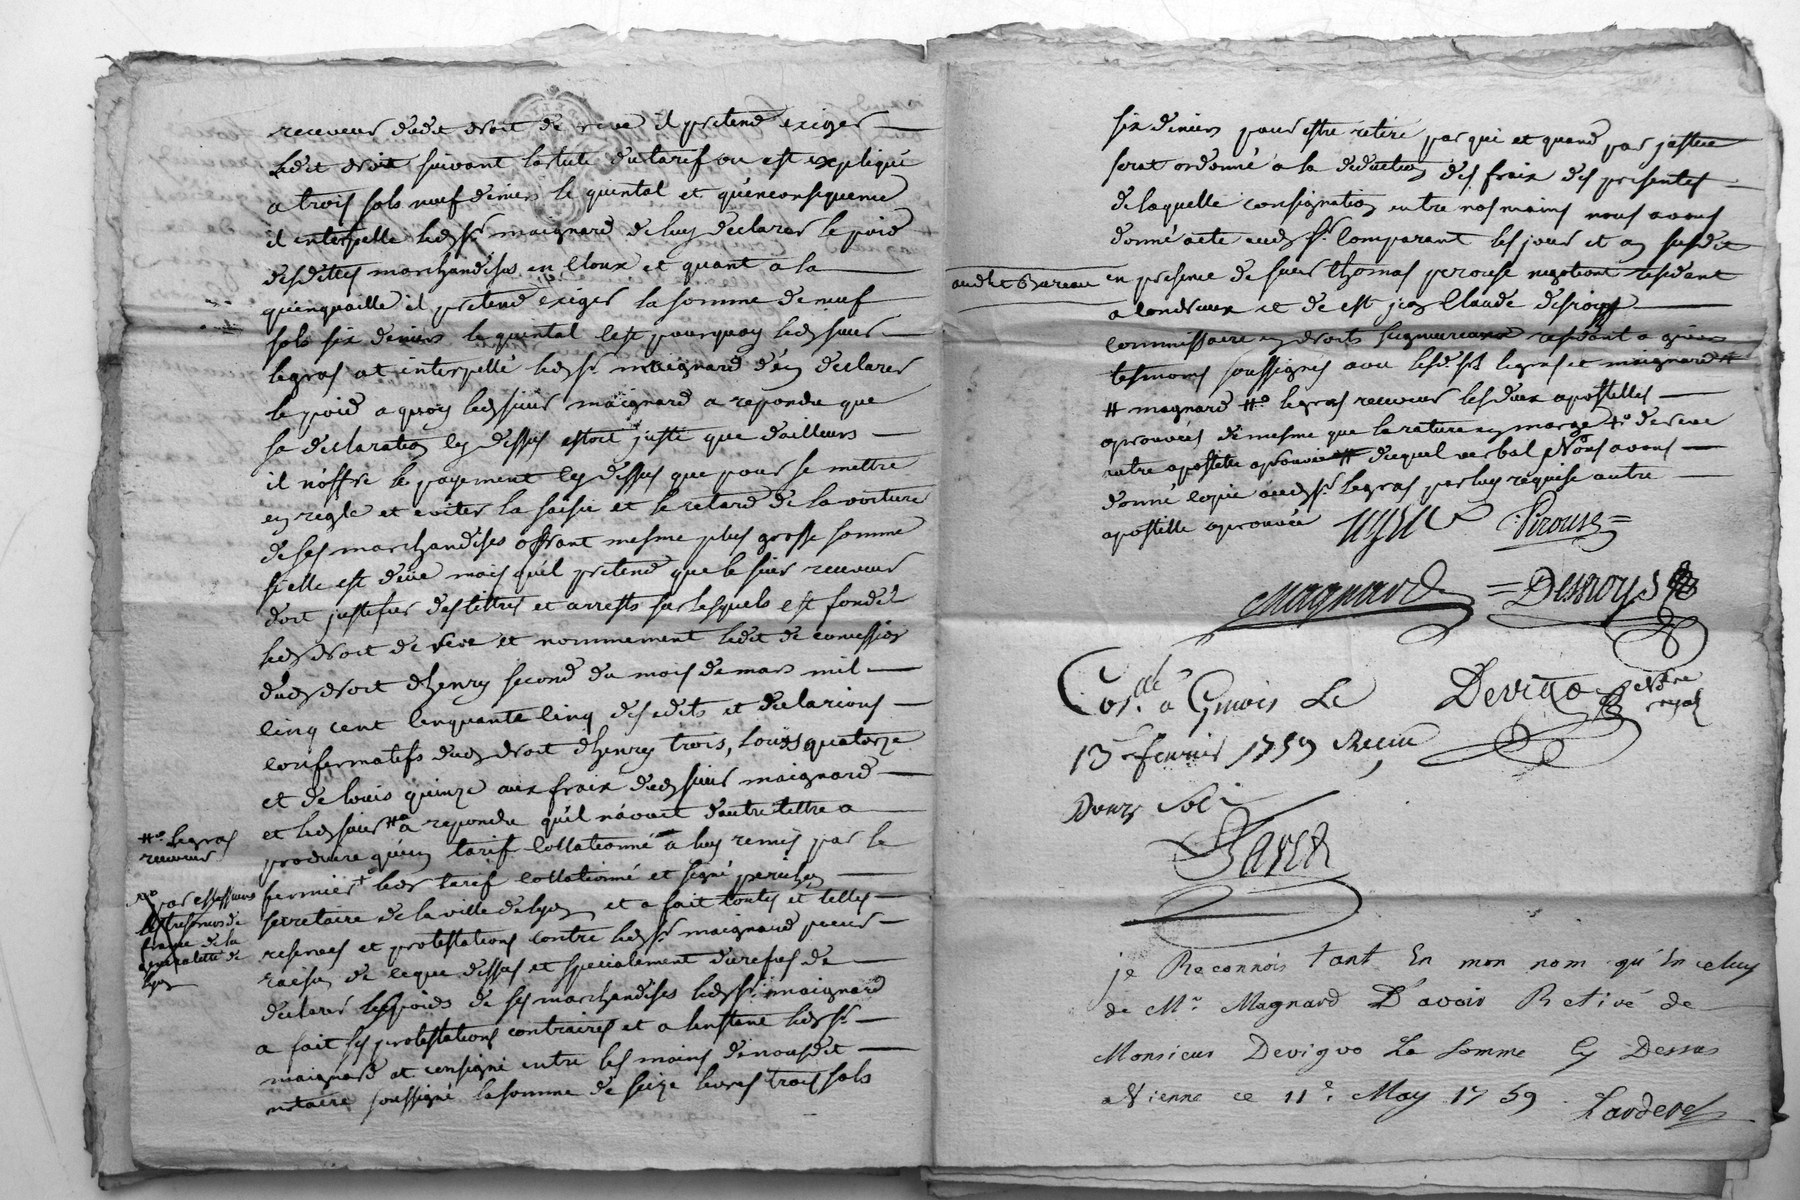 receveur dudit droit de reve il pretend exiger
ledit droit suivant lartule du tarif ou est expliqué
a trois sols neuf deniers le quintal et quenconsequence
il interpelle ledt sr maignard de luy declarer le poid
desdittes marchandises en cloux et quant a la
quinquaille il pretend exiger la somme de neuf
sols six deniers le quintal cest pourquoy ledt sieur
legras at interpellé ledt sr maignard d'en declarer
le poid a quoy ledt sieur maignard a repondu que
sa declaration cy dessus estoit juste que dailleurs
il n'offre le payement cy dessus que pour se mettre
en regle et eviter la saisie et le retard de la voiture
de ses marchandises offrant mesme plus grosse somme
si elle est deüe mais qu'il pretend que le sieur receveur
doit justifier des tittres et arrests sur lesquels est fondé
ledt droit de reve et nommement ledit de concession
dudt droit d'henry second du mois de mars mil
cinq cent cinquante cinq des edits et declarions
confermatifs dudt droit d'henry trois, Louis quatorze
et de louis quinze aux fraix dudt sieur maignard
et ledt sieur #o a repondu qu'il n'avoit d'autre tittre a
produire qu'un tarif collationné a luy remis par le
fermier +o ledt tarif collationné et signé perichon
secretaire de la ville de lyon et a fait touttes et telles
reserves et protestations contre ledt sr maignard pour
raison de ce que dessus et specialement du refus de
declarer le poids de ses marchandises ledt sr maignard
a fait ses protestations contraires et a linstant ledt sr
maignard at consigné entre les mains de nousdit
notaire soussigné la somme de seize livres trois sols
#o legras
receveur
+o par essieurs
les tresoriers de
france de la
generalitté de
lyon
six deniers pour estre retiré par qui et quand par justice
serat ordonné a la deduction des fraix des presentes
de laquelle consignation entre nos mains nous avons
donné acte audt sr Comparant les jour et an susdit
audt Bureau
en presence de sieur thomas perouse negotiant residant
a condrieux et de est jean Claude desroys
commissaire en droits seigneuriaux residant a givors
tesmoins soussignés avec lesd. srs legras et maignard #
# magnard #o legras receveur les deux apostilles
aprouvées de mesme que la rature en marge +o de reve
autre apostille aprouvée # duquel verbal Nous avons
donné copie audt sr legras par luy requise autre
apostille aprouvée
Pirouse
Magnard = Desroys
Devigo Notre
royal
Con.lé a Givors Le
13e fevrier 1759 Recu
Douze Sols
je Reconnois tant En mon nom qu'En celuy
de Mr. Magnard D'avoir Retiré de
Monsieur Devigvo La Somme Cy Dessus
a Vienne ce 11e. May 1759 Larderel